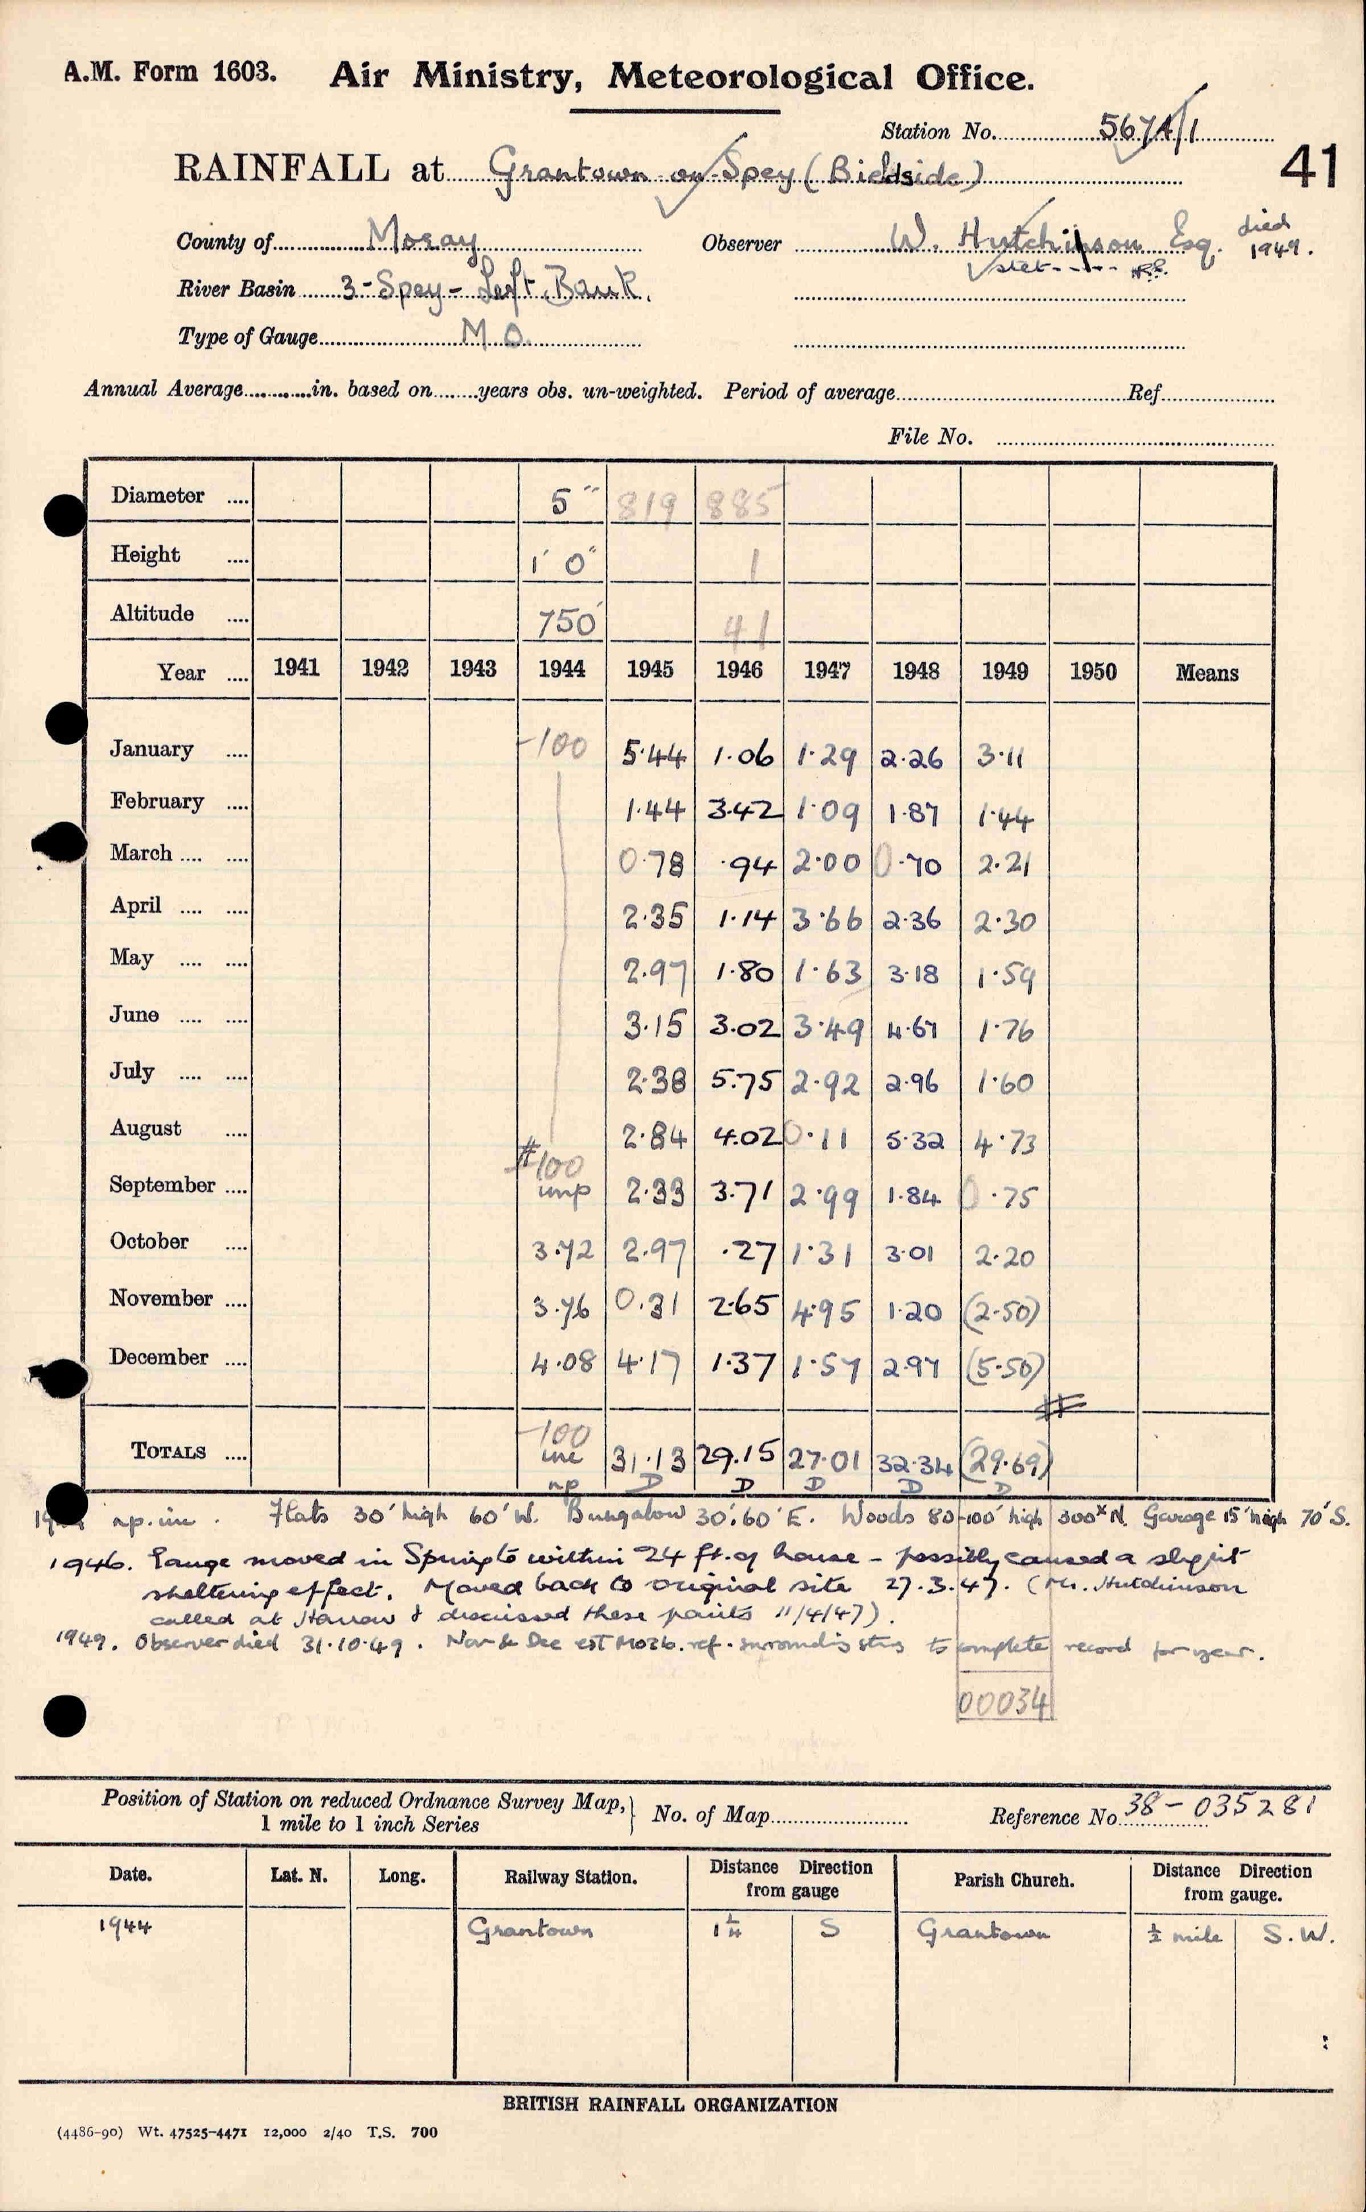 A.M. Form 1603. Air Ministry, Meteorological Office.
Station No. 5674/1
41
RAINFALL at Grantown-on-Spey (Bieldside)
County of Moray Observer W. Hutchinson Esq. died 1949.
stet
River Basin 3-Spey-Left Bank.
Type of Gauge M.O.
Annual Average in. based on years obs. un-weighted. Period of average Ref
File No.
Diameter .... 5" 819 885
Height .... 1' 0" 1
Altitude .... 750' 41
Year .... 1941 1942 1943 1944 1945 1946 1947 1948 1949 1950 Means
January .... -100 5.44 1.06 1.29 2.26 3.11
February .... 1.44 3.42 1.09 1.87 1.44
March .... .... 0.78 .94 2.00 0.70 2.21
April .... .... 2.35 1.14 3.66 2.36 2.30
May .... .... 2.97 1.80 1.63 3.18 1.59
June .... .... 3.15 3.02 3.49 4.67 1.76
July .... .... 2.38 5.75 2.92 2.96 1.60
August .... 2.84 4.02 0.11 5.32 4.73
# -100
September .... unp 2.33 3.71 2.99 1.84 0.75
October .... 3.72 2.97 .27 1.31 3.01 2.20
November .... 3.76 0.31 2.65 4.95 1.20 (2.50)
December .... 4.08 4.17 1.37 1.57 2.97 (5.50)
#
-100
TOTALS .... inc 31.13 29.15 27.01 32.34 (29.69)
np D D D D D
1944 np. inc. Flats 30' high 60' W. Bungalow 30' : 60' E. Woods 80-100' high 300x N. Garage 15' high 70' S.
1946. Gauge moved in Spring to within 24 ft. of house - possibly caused a slight
sheltering effect. Moved back to original site 27.3.47. (Mr. Hutchinson
called at Harrow & discussed these points 11/4/47).
1949. Observer died 31.10.49. Nov & Dec est MO2b. ref. surrounding stns to complete record for year.
00034
Position of Station on reduced Ordnance Survey Map, 1 mile to 1 inch Series } No. of Map Reference No 38-035281
Date. Lat. N. Long. Railway Station. Distance Direction from gauge Parish Church. Distance Direction from gauge.
1944 Grantown 1¼ S Grantown ½ mile S.W.
BRITISH RAINFALL ORGANIZATION
(4486-90) Wt. 47525-4471 12,000 2/40 T.S. 700